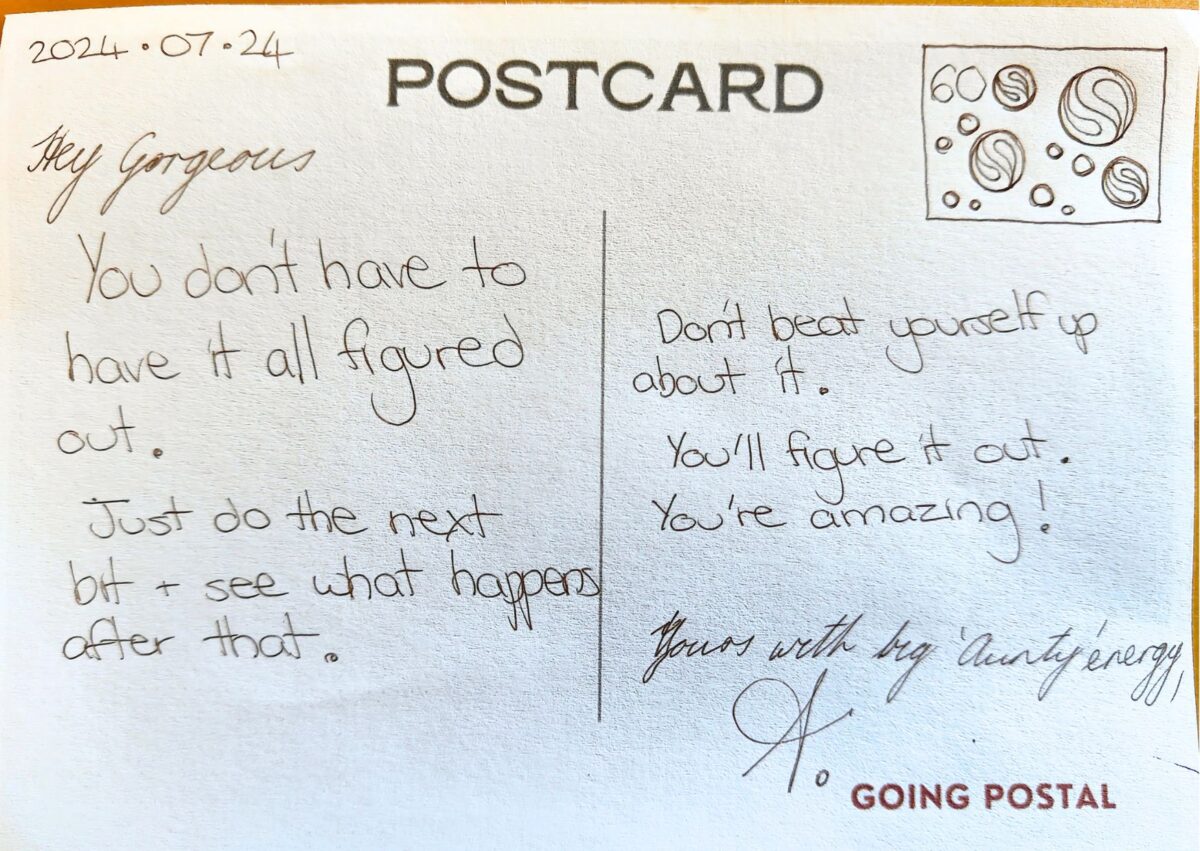 2024.07.24
POSTCARD
60
Hey Gorgeous
You don't have to
have it all figured
out.
Just do the next
bit + see what happens
after that.
Don't beat yourself up
about it.
You'll figure it out.
You're amazing!
Yours with big 'Aunty' energy,
A.
GOING POSTAL